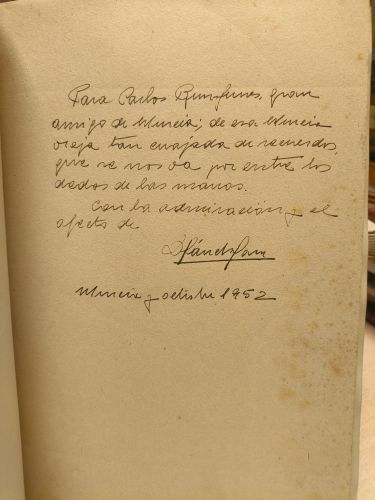 Para Carlos Ruiz-Funes, gran
amigo de Murcia; de esa Murcia
vieja tan cuajada de recuerdos,
que se nos va por entre los
dedos de las manos.
Con la admiración y el
afecto de
Murcia y octubre 1952